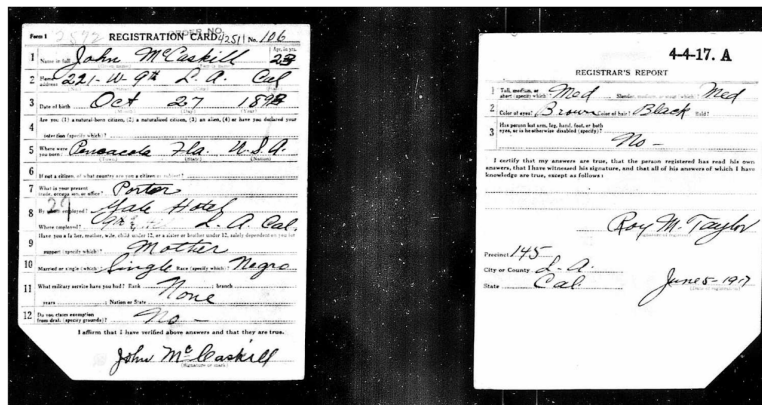 Form 1 2872 REGISTRATION CARD No. 106
1 Name in full John McCaskill Age, in yrs. 23
2 Home address 221-W 9th L.A. Cal
3 Date of birth Oct 27
4 Are you (1) a natural-born citizen, (2) a naturalized citizen, (3) an alien, (4) or have you declared your
intention (specify which)?
5 Where were you born? Pencacola Fla. U.S.A.
(Town) (State) (Nation)
6 If not a citizen, of what country are you a citizen or subject?
7 What is your present trade, occupation, or office? Porter
8 By whom employed? Yale Hotel
Where employed? L.A. Cal.
9 Have you a father, mother, wife, child under 12, or a sister or brother under 12, solely dependent on you for
support (specify which)? Mother
10 Married or single (which)? Single Race (specify which)? Negro
11 What military service have you had? Rank None branch
years Nation or State
12 Do you claim exemption from draft (specify grounds)? No -
I affirm that I have verified above answers and that they are true.
John McCaskill
(Signature or mark)
4-4-17. A
REGISTRAR'S REPORT
1 Tall, medium, or short (specify which)? Med Slender, medium, or stout (which)? Med
2 Color of eyes? Brown Color of hair? Black Bald?
3 Has person lost arm, leg, hand, foot, or both eyes, or is he otherwise disabled (specify)?
No -
I certify that my answers are true, that the person registered has read his own
answers, that I have witnessed his signature, and that all of his answers of which I have
knowledge are true, except as follows:
Roy M. Taylor
Precinct 145
City or County L.A.
State Cal. June 5-1917